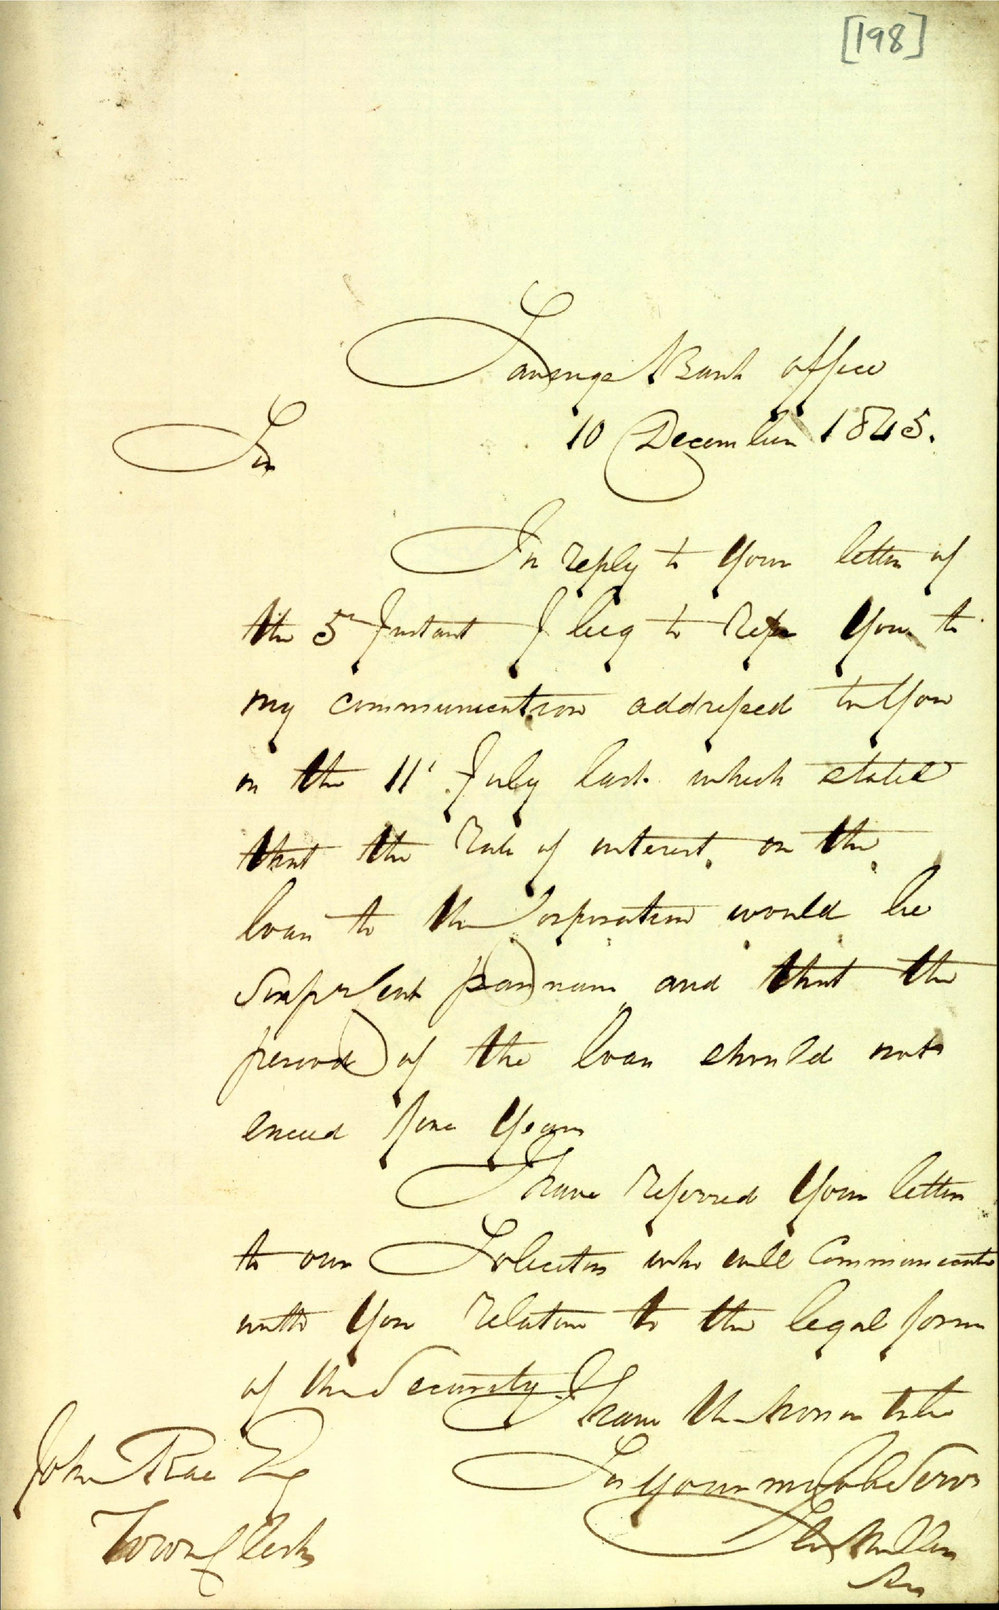 [198]
Savings Bank office
10 December 1845.
Sir
In reply to Your letter of
the 5th Instant I beg to Refer You to
my communication addressed to You
on the 11th July last which stated
that the Rate of interest on the
loan to the Corporation would be
Six pr Cent p annum and that the
period of the loan should not
exceed five Years
I have referred Your letter
to our Solicitor who will Communicate
with You relative to the legal form
of the Security
I have the honor to be
Sir Your most obt Servt
John Rae Esq
Town Clerk